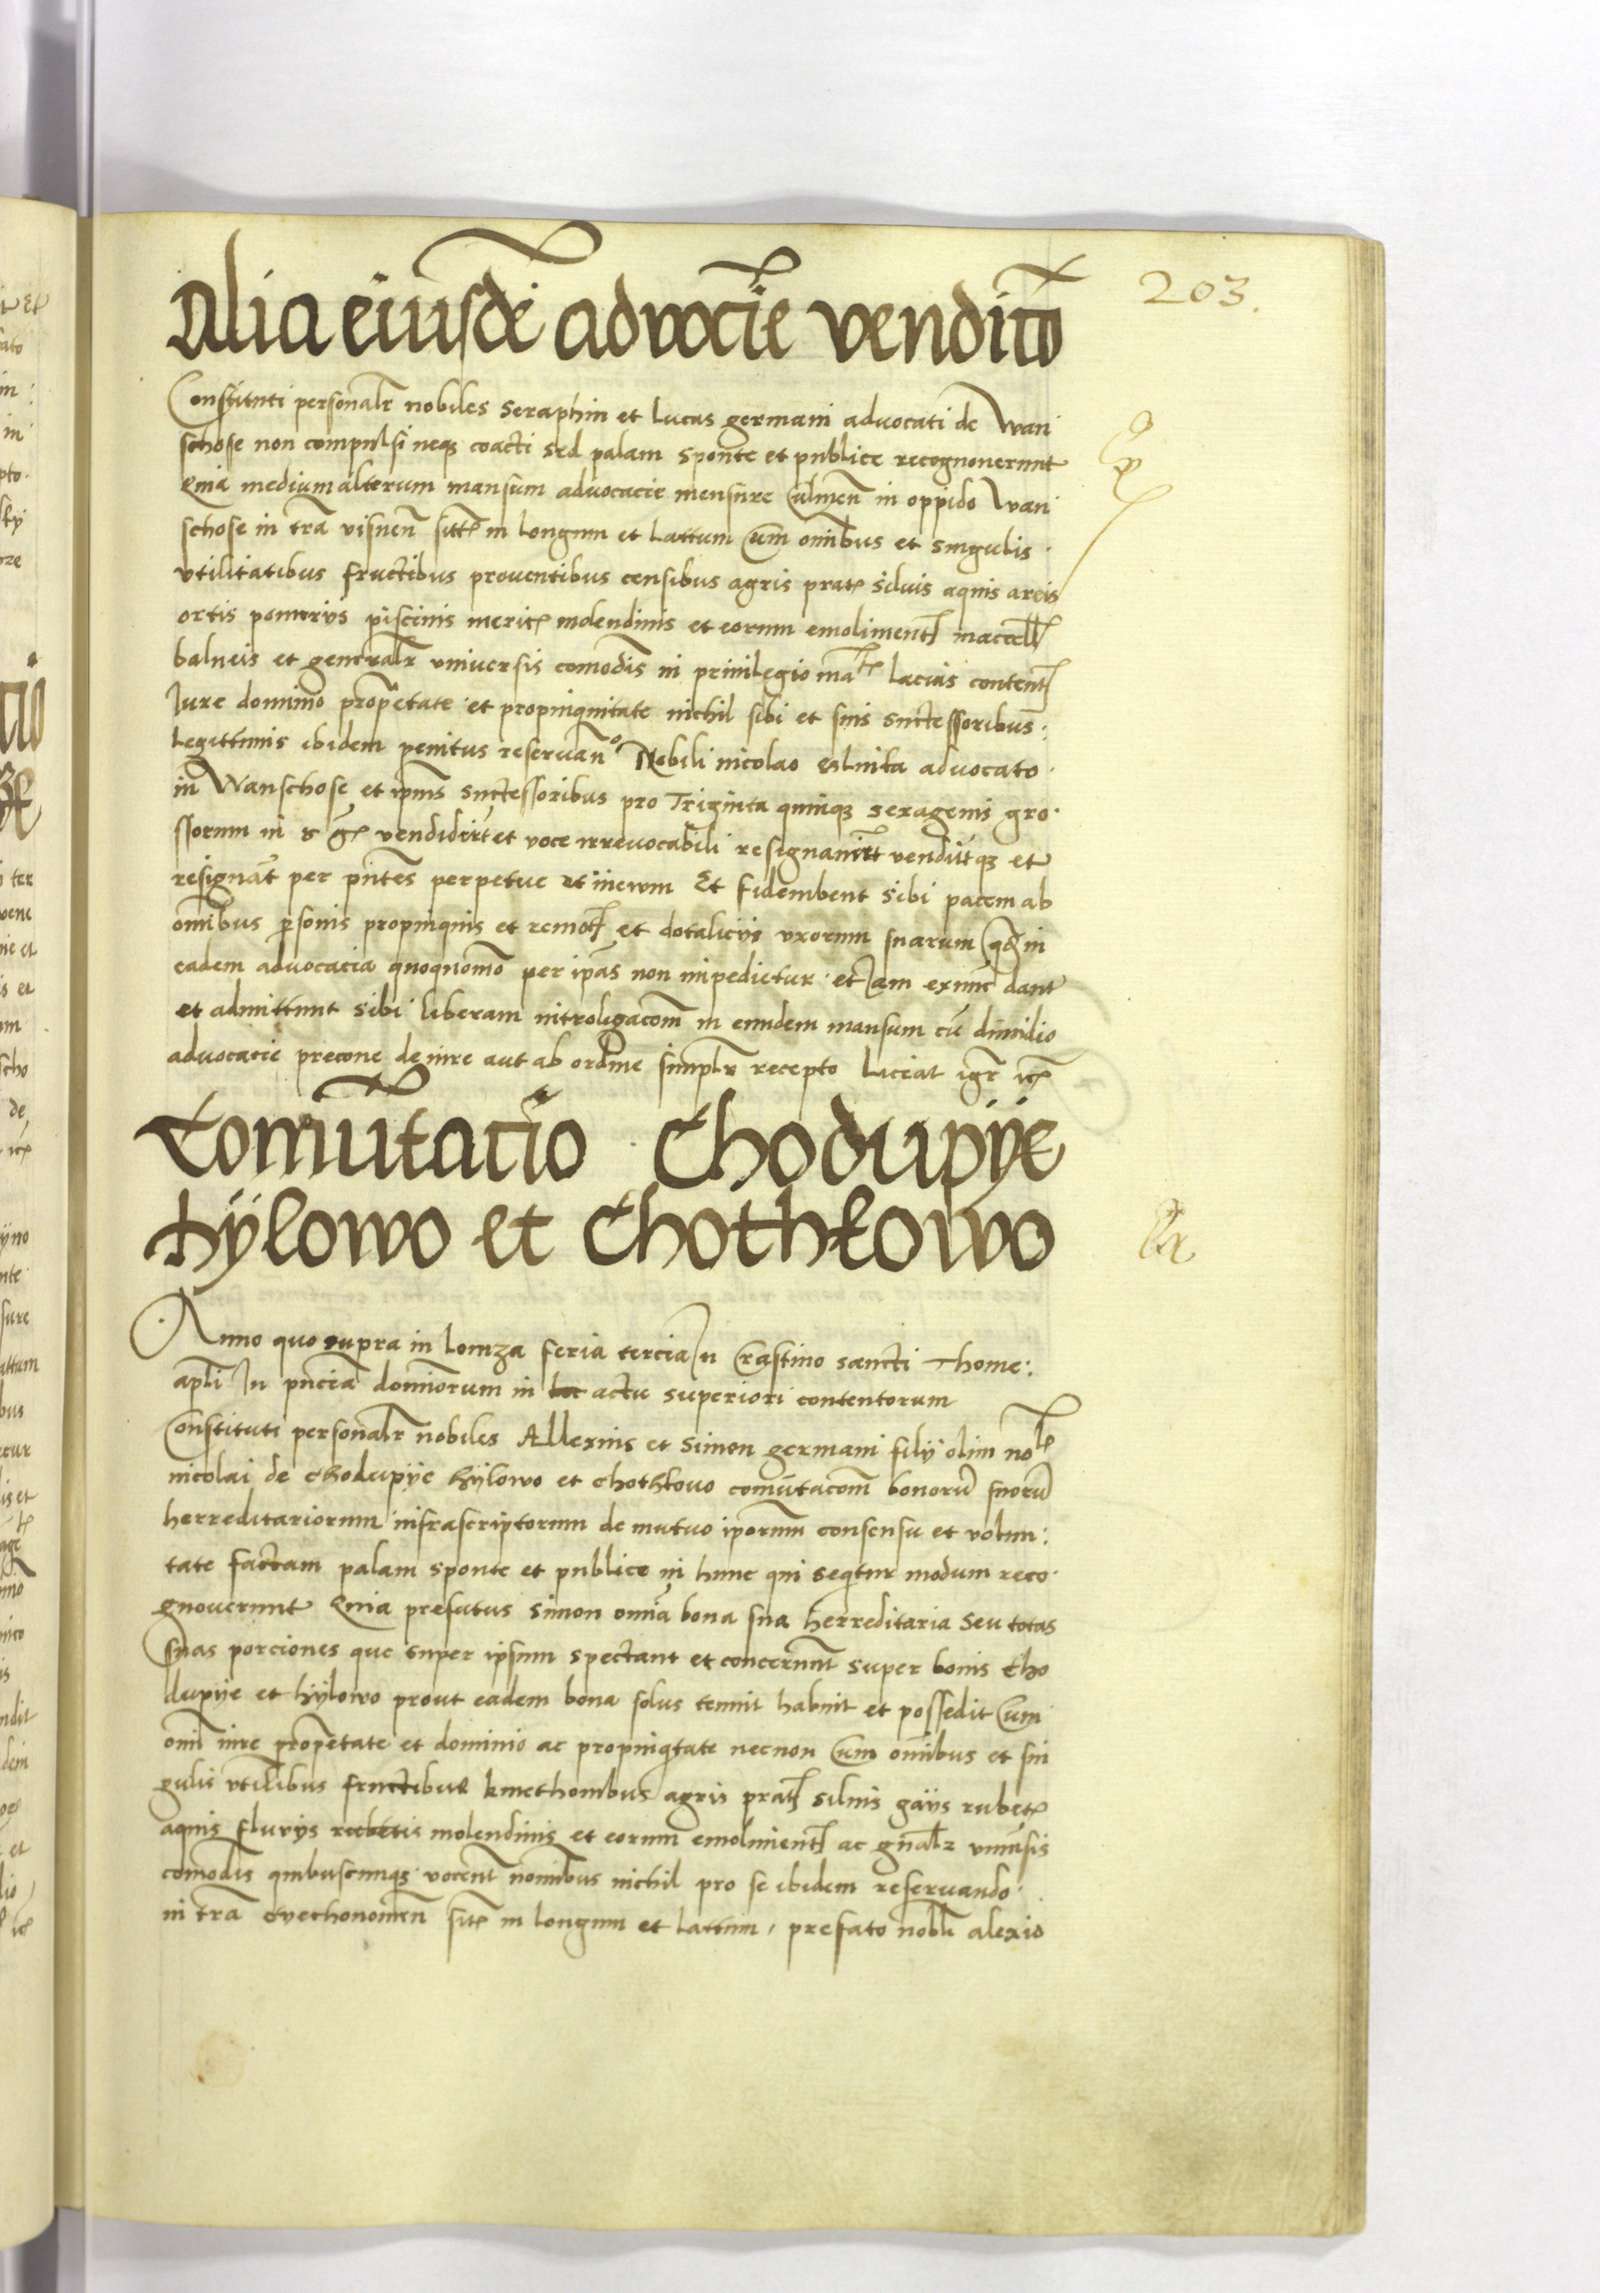 203.
Alia eiusdē advocie vendicio
Constituti personalr nobiles Seraphin et Lucas germani advocati de Wan
schose non compulsi neqz coacti sed palam sponte et publice recognoverunt
Quia medium alterum mansum advocacie mensure Culmen̄ in oppido Wan
schose in tr̄a visnen̄ in longum et Lattum Cum om̄ibus et singulis
vtilitatibus fructibus proventibus censibus agris prat siluis aquis areis
ortis pomeriis piscinis meric molendinis et eorum emoliment maccell
balneis et generalr vniversis comodis in privilegio content
Jure dominio propetate et propinquitate nichil sibi et suis successoribus:
legittimis ibidem penitus reservando Nobili nicolao advocato
in Wanschose et ipius successoribus pro Triginta quinqz sexagenis gro
ssorum in vendiderūt et voce irrevocabili resignaverūt vendūtqz et
resignāt per pn̄tes perpetue et inewm Et fidembent sibi pacem ab
om̄ibus psonis propinquis et remot et dotaliciis vxorum suarum in
eadem advocacia quoquomo per ipās non impedietur et Jam exnūc dant
et admittunt sibi liberam introligacōm in eundem mansum cū dimidio
advocacie precone de iure aut ab ordine simplr recepto liceat igr
Comūtacio Chodupÿe
hÿlowo et Chothkowo
Anno quo supra in Lomza feria tercia In Crastino sancti Thome:
apl̄i In pn̄cia dominorum in actu superiori contentorum
Constituti personalr nobiles Allexius et Simon germani filÿ olim nobl
nicolai de Chodupÿe hÿlowo et Chothkowo comūtacōm bonorū suorū
herreditariorum infrascriptorum de mutuo ipōrum consensu et volun:
tate factam palam sponte et publice in hunc qui seqitur modum reco
gnoverunt Quia prefatus Simon omīa bona sua herreditaria seu totas
suas porciones que super ipsum spectant et concernunt super bonis Cho
dupÿe et hÿlowo prout eadem bona solus tenuit habuit et possedit Cum
om̄i iure propetate et dominio ac propinqitate necnon Cum om̄ibus et sin
gulis vtilibus fructibus kmethonibus agris prat siluis gaÿs rubet
aquis fluvÿs molendinis et eorum emoliment ac gn̄alr vniūsis
comodis quibuscumqz vocent nominibus nichil pro se ibidem reservando
in tr̄a sit in longum et Lattum, prefato nobl̄i alexio